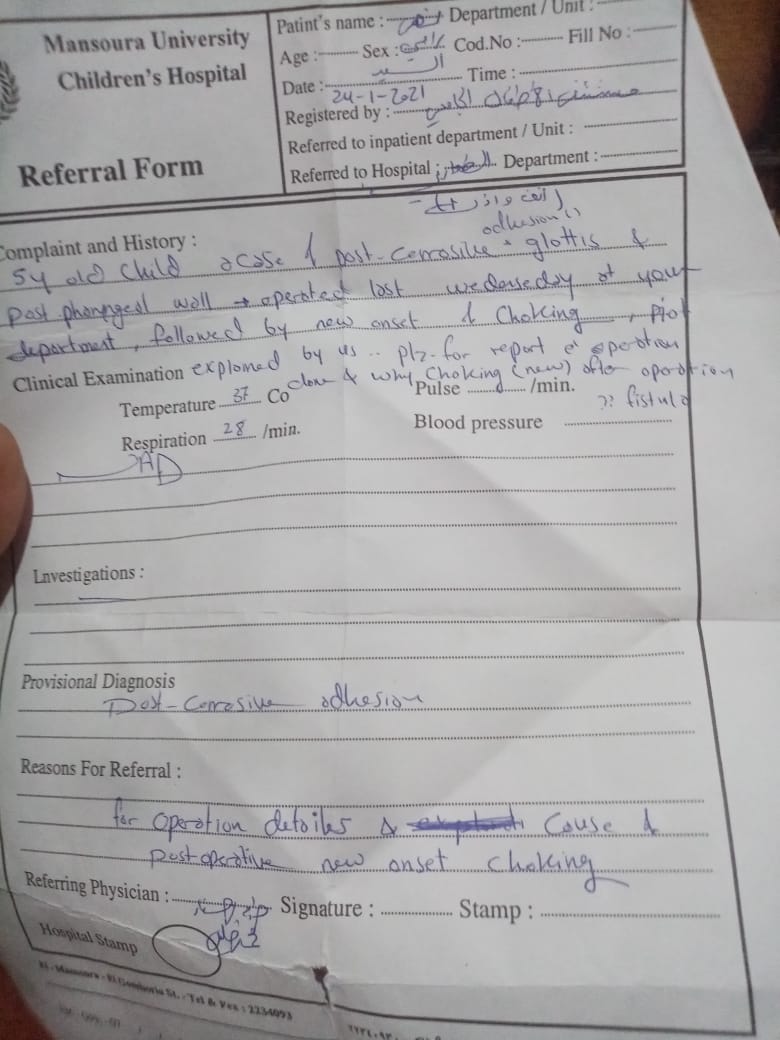 Mansoura University
Children's Hospital
Referral Form
Patint's name : Department / Unit :
Age : Sex : Cod.No : Fill No :
السيد
Date : 24-1-2021 Time :
Registered by : مستشفى الأطفال الجامعى
Referred to inpatient department / Unit :
Referred to Hospital : Department :
أنف وأذن
Complaint and History :
adhesion
5y old child a case of post-corrosive glottis &
post pharyngeal wall → operated last wedensday at your
department, followed by new onset of choking,
Clinical Examination explomed by us .. plz. for report e operation
done & why choking (new) after operation
Temperature 37 Co Pulse /min.
?? fistula
Respiration 28 /min. Blood pressure
Lnvestigations :
Provisional Diagnosis
Post-Corrosive adhesion
Reasons For Referral :
for operation detoiles & Couse of
postoperative new onset choking
Referring Physician : Signature : Stamp :
Hospital Stamp
El-Mansoura - El-Gomhoria St. - Tel & Fax : 2234093